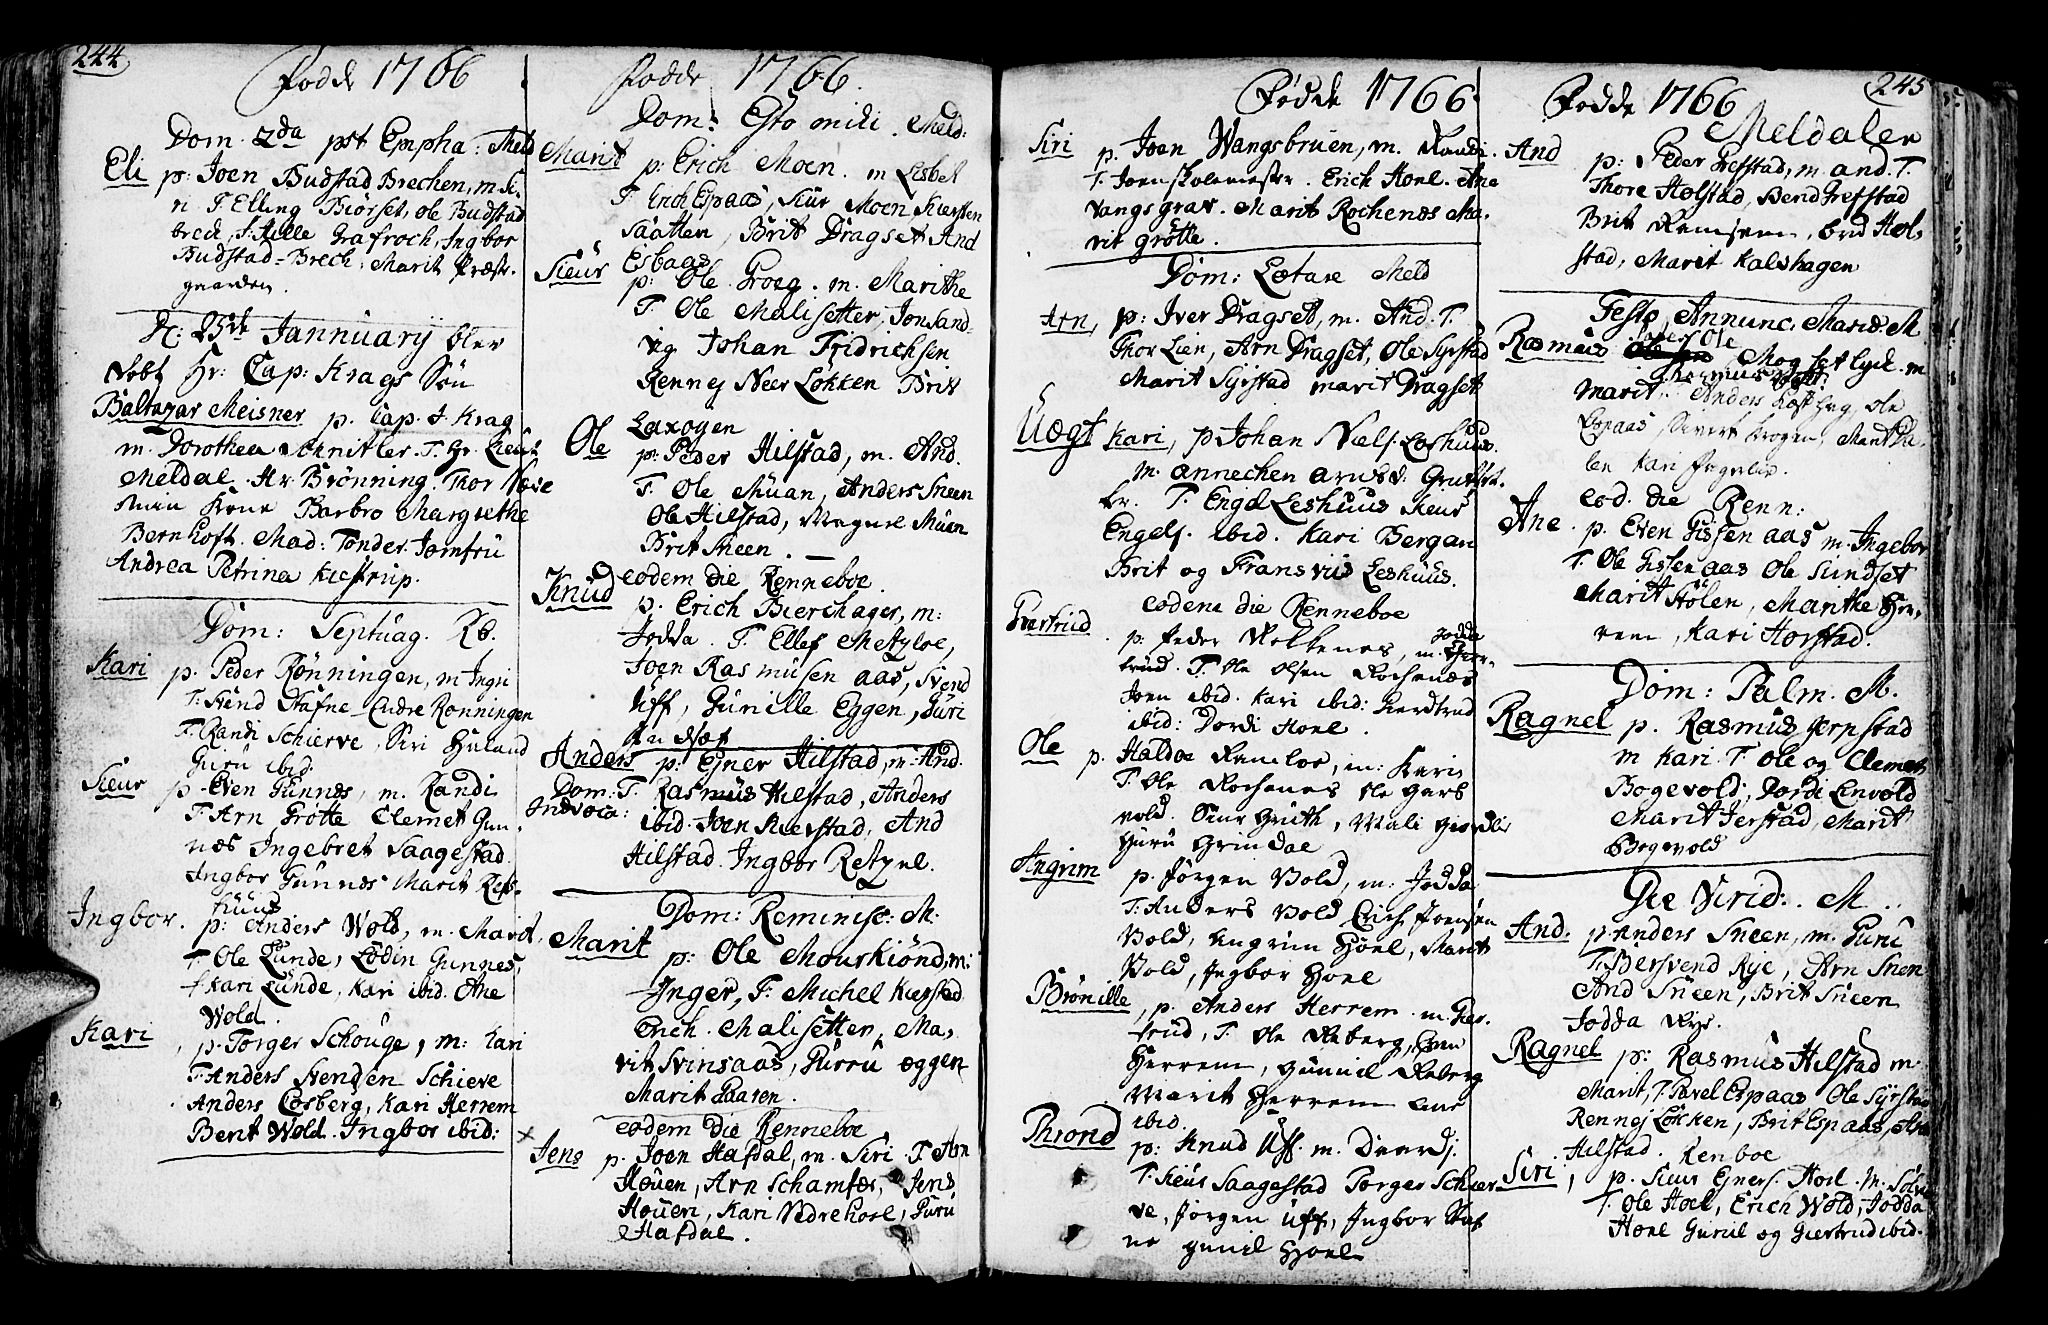 244
Fødde 1766
Dom. 2da pst Epipha: Meld
Eli p: Joen Budstad Brechen, m Si-
ri T. Elling Biørset, Ole Budstad
brech, S. Helle Grafroch, Ingbor
Budstad-Brech, Marit Præst-
gaarden.
D: 25de Jannuarij blev
døbt Hr: Cap: Krags Søn
Baltazar Meisner p. Cap. J. Krag
m. Dorothea Schnitler. T. Hr. Lieut
Meldal. Hr. Brønning. Thor
Min Kone Barbro Margrethe
Bernhoft. Mad: Tønder. Jomfru
Andrea Petrina Kiestrup.
Dom: Septuag. Rb.
Kari p. Peder Rønningen, m Ingri
T. Svend Stafne Endre Rønningen
T. Randi Schierve, Siri Huland
Guru ibid.
Sieur p. Even Gunnes, m. Randi
T. Arn Grøtte Clemet Gun-
nes Ingebret Saagestad
Ingbor Gunnes Marit Refs-
huus
Ingbor. p: Anders Wold, m. Marit,
T. Ole Lunde, Lodin Gunnes,
Kari Lunde, Kari ibid. Ane
Wold.
Kari, p. Torger Schouge, m: Kari
T. Anders Svendsen Schieve
Anders Cosberg, Kari Herrem
Berit Wold. Ingbor ibid:
Fødde 1766.
Dom: Esto mihi. Meld:
Marit p: Erich Moen. m Lisbet
T. Erich Espaas, Siur Moen Kiersten
Saatten, Brit Dragset And
Esbaas
Sieur p: Ole Groeg. m. Marithe
T. Ole Malisetter, Jon Sand-
vig Johan Fridrichsen
Rennej Neer Løkken Brit
Laxøyen
Ole p: Peder Hilstad, m. And.
T. Ole Muan, Anders Sneen
Ole Hilstad, Magnel Muan
Brit Sneen.
eodem die Renneboe
Knud p. Erich Bierchager, m:
Jodda. T. Ellef Metzloe,
Joen Rasmusen aas, Svend
Uff, Gunille Eggen, Guri
Anders p: Egner Hilstad, m. And.
Dom: T. Rasmus Hilstad, Anders
Indvoca: ibid. Joen Kierstad, And
Hilstad. Ingbor Retzel.
Dom: Reminisc: M:
Marit p: Ole Mouskiønd, m:
Inger, T. Michel Kierstad
Erich Malisetter, Ma-
rit Svinsaas, Gurru Eggen
Marit Gaaren.
eodem Die Renneboe
Jens p. Joen Hafdal, m. Siri. T. Arn
Houen, Arn Schamfær, Jens
Houen, Kari Nedrehoel, Guru
Hafdal.
Fødde 1766.
Siri p. Joen Wangsbruen, m. Randi.
T. Joen Skolemester. Erich Hoel. Ane
Vangsgrav. Marit Rochenes Ma-
rit Grøtte.
Dom: Lætare Meld
Arn, p: Iver Dragset, m. And. T.
Thor Lien, Arn Dragset, Ole Syrstad
Marit Syrstad Marit Dragset
Uægt Kari, p Johan Nels. Leshuus.
m. annechen arnsd. Grutset.
br. T. Engel Leshuus Sieur
Engels. ibid. Kari Bergan
Brit og Fransvüs Leshuus.
eodem die Renneboe
Giertrud p. Peder Volkenes, m. Jodda Gier-
trud. T. Ole Olsen Rochenes
Joen ibid. Kari ibid: Giertrud
ibid: Dordi Hoel.
Ole p. Haldoe Ramloe, m: Kari
T. Ole Rochenes Ole Garb
vold. Siur Grüth, Mali Gisdli
Guru Grindal
Angrim p. Jørgen Vold, m: Jodda
T: Anders Vold Erich Joensen
Vold, Angrim Hoel, Marit
Vold, Ingbor Hoel
Brønille, p. Anders Herrem. m. Gier-
trud, T. Ole Reberg, Even
Herrem, Gunnil Reberg
Marit Herrem Ane
ibid.
Thrond p: Knud Uff. m. Dordi.
T. Sieur Saagestad Torger Schier
ve, Jørgen Uff, Ingbor Staf
ne Gunil Hoel
245
Fødde 1766
Meldalen
And p: Peder Grefstad, m. And. T.
Thore Holstad, Bend Grefstad
Brit Ramsem, Brid Hol-
stad, Marit Kalshagen
Festo Annunc. Mariæ. M
Rasmus Mogset lyck. m
Marit. Anders Hæsthag, Ole
Espaas, Sivert Krogen, Marit
len Kari Ingelin.
eod. die Renn:
Ane. p. Even Gissenaas m. Ingebor
T. Ole Gissenaas Ole Sundset
Marit Stølen, Marithe Her-
rem, Kari Horstad.
Dom: Palm. M.
Ragnel p. Rasmus Jerpstad
m Kari. T. Ole og Clemet
Bogevold, Dordi Envold
Marit Jerstad, Marit
Bogevold
Die Virid: M.
And. p: Anders Sneen, m. Guru
T. Bersvend Rye, Arn Sneen
And Sneen, Brit Sneen
Jodda Rye.
Ragnel p: Rasmus Hilstad m
Marit, T. Pavel Espaas Ole Syrstad
Rennej Løkken, Brit Espaas,
Hilstad. Renboe
Siri, p. Sieur Egners. Hoel. m.
T. Ole Hoel, Erich Wold, Jodda
Hoel Guruil og Giertrud ibid.